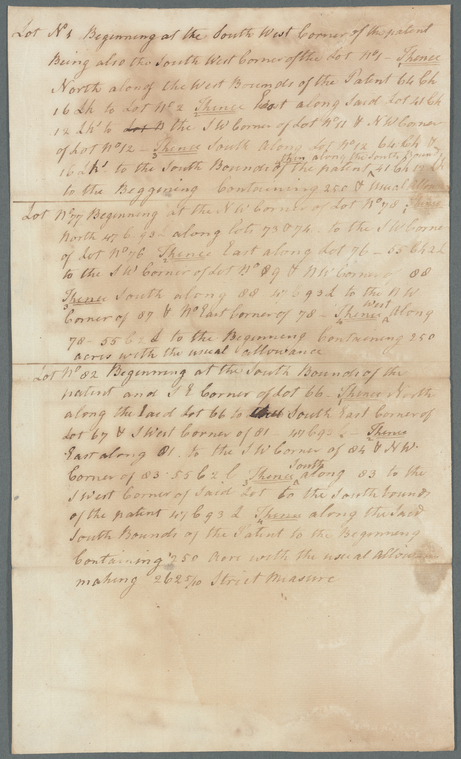 Lot No 1 Beginning at the South West Corner of the patent
Being also the South West Corner of the Lot No 1 - Thence
North along the West Bounds of the Patent 64 Ch
16 Lk to Lot No 2 Thence East along Said Lot 41 Ch
12 Lk to the S W Corner of Lot No 11 & N W Corner
of Lot No 12 - Thence South along Lot No 12 64 Ch &
16 Lk to the South Bounds of the patent Then along the South Bounds 41 Ch 12 Lk
to the Beggening Containing 250 & Usual Allow
Lot No 77 Beginning at the N W Corner of Lot No 78 Thence
North 47 C 93 L along lots 73 & 74 to the S W Corner
of Lot No 76 Thence East along Lot 76 - 55 C 2 L
to the S W Corner of Lot No 89 & N W Corner of 88
Thence South along 88 47 C 93 L to the N W
Corner of 87 & No East Corner of 78 - Thence West along
78 - 55 C 2 L to the Beginning Containing 250
acres with the usual allowance
Lot No 82 Beginning at the South Bounds of the
patent and S E Corner of Lot 66 - Thence North
along the Said Lot 66 to the South East Corner of
Lot 67 & S West Corner of 81 47 C 93 L - Thence
East along 81 to the S W Corner of 84 & N W
Corner of 83 - 55 C 2 L Thence South along 83 to the
S West Corner of Said Lot to the South bounds
of the patent 47 C 93 L Thence along the Said
South Bounds of the Patent to the Beginning
Containing 250 Acre with the usual Allow
making 262 5/10 Strict Measure